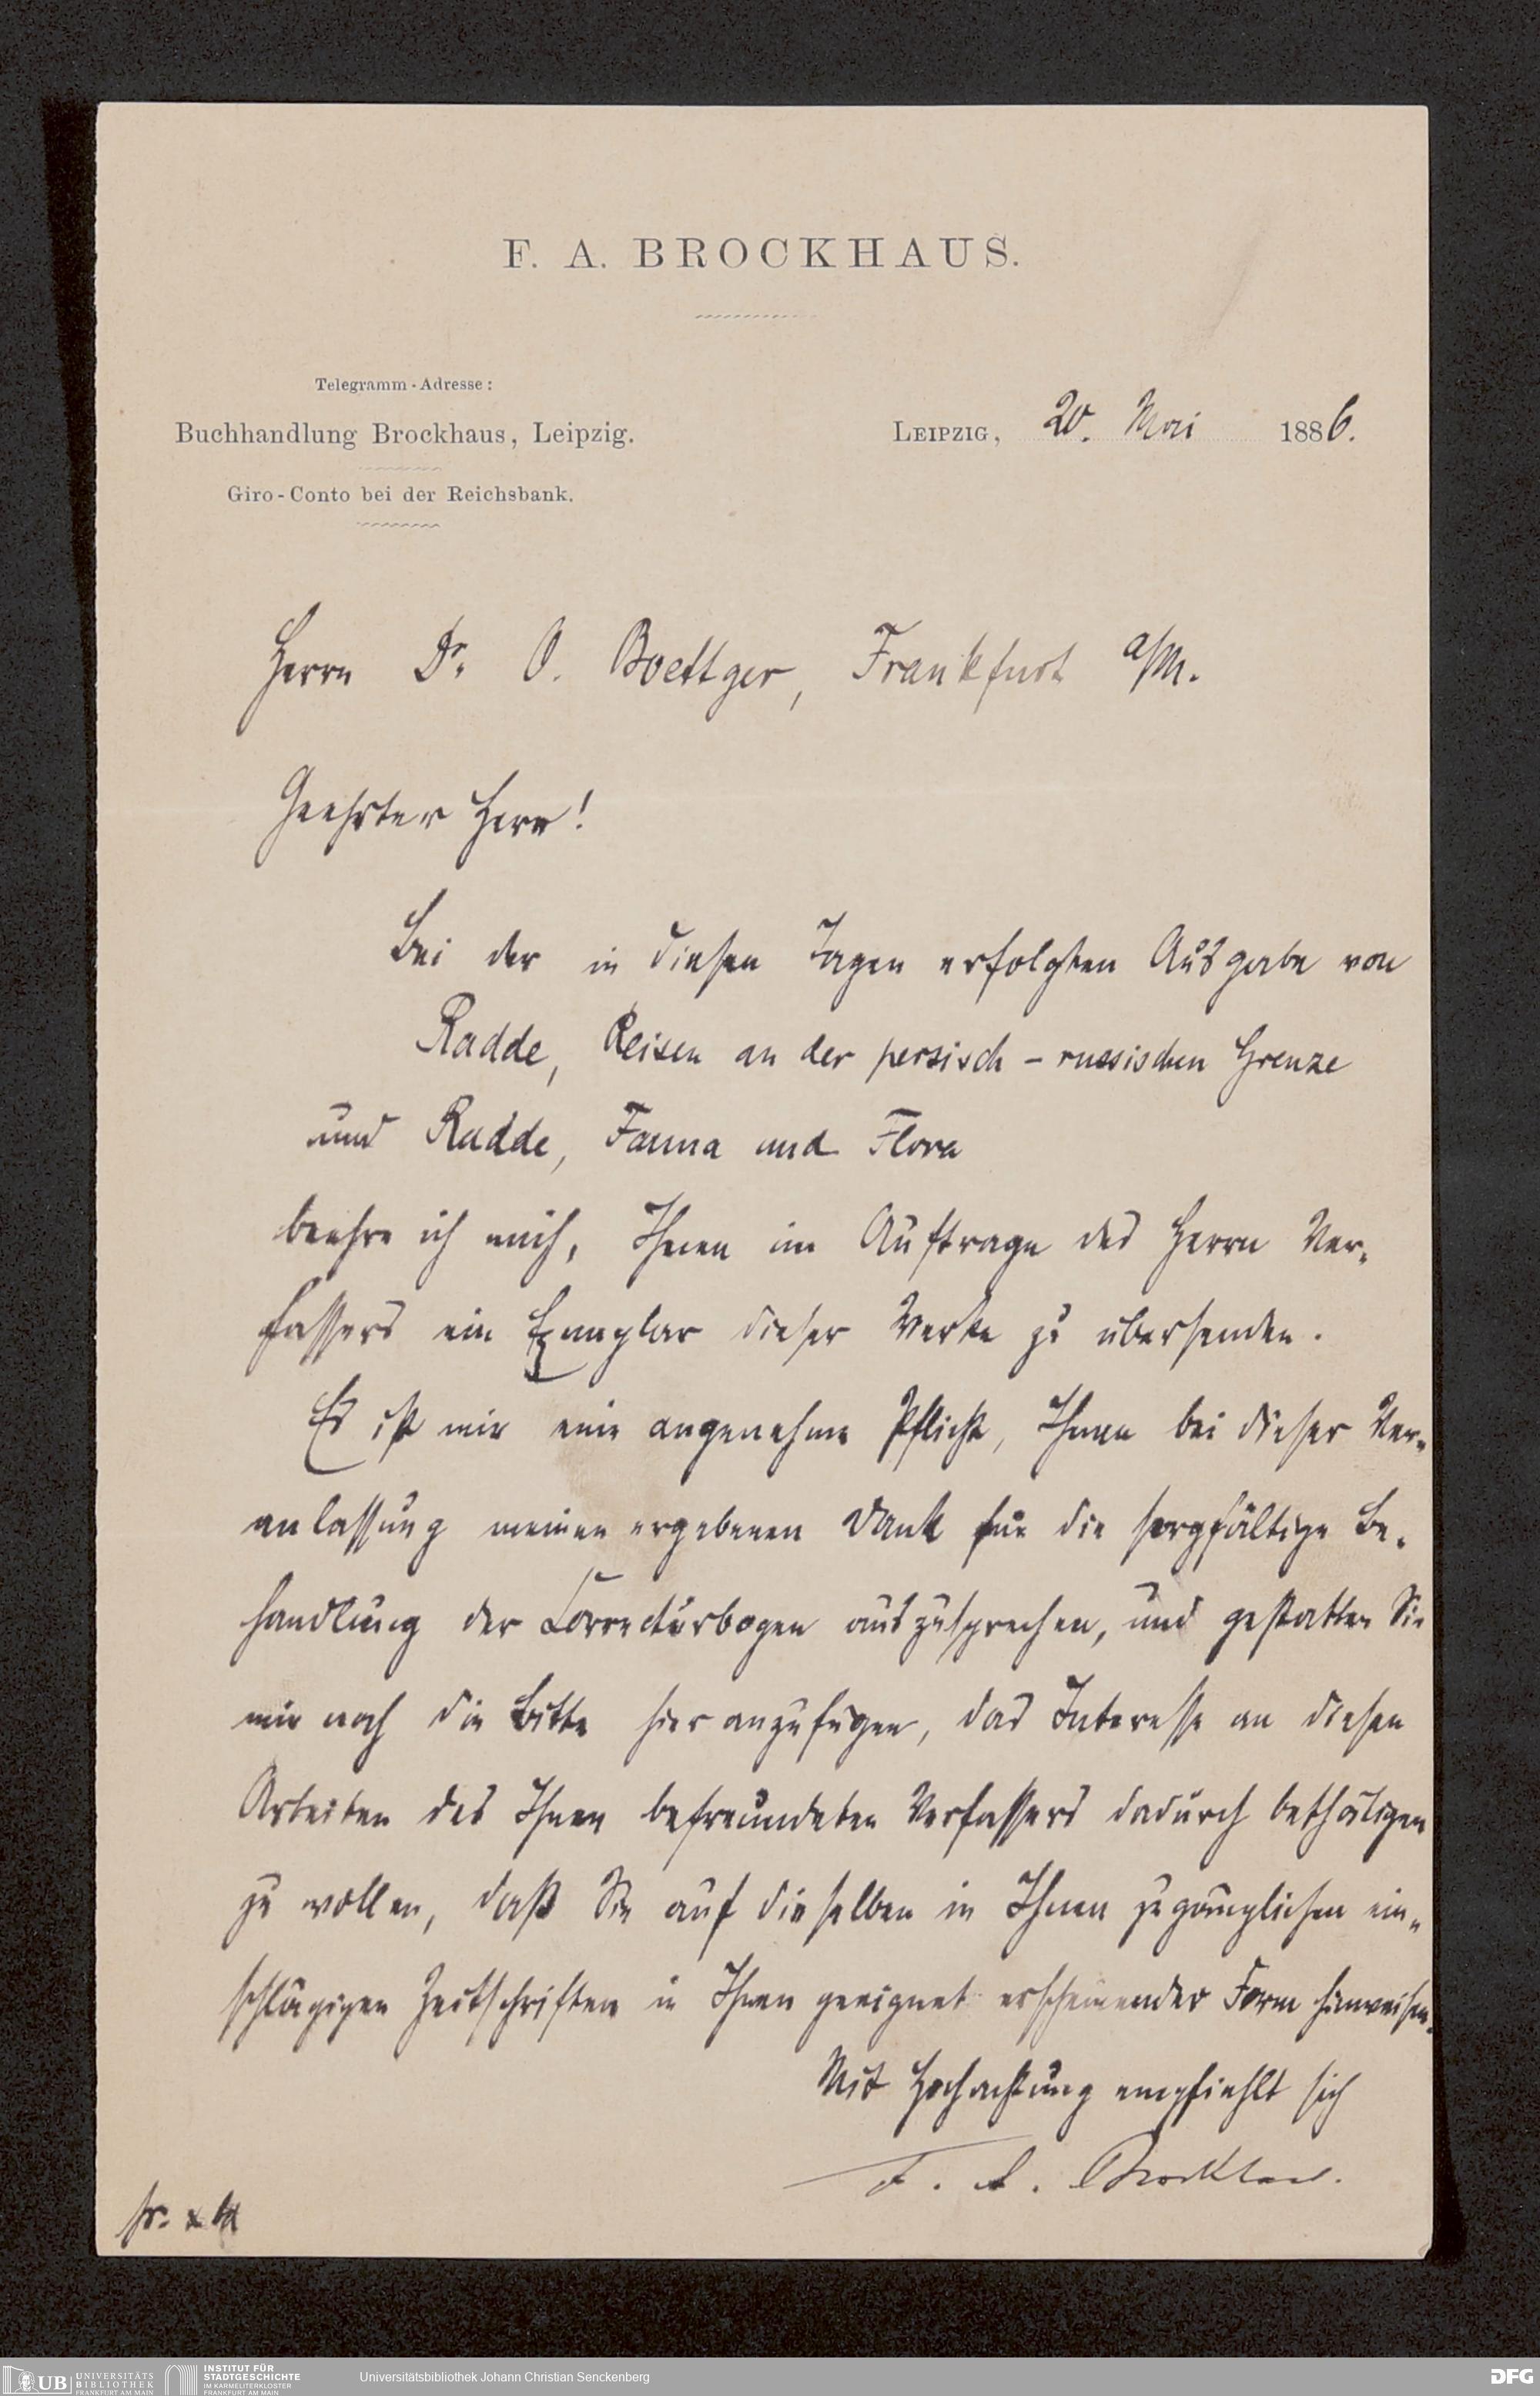 F. A. BROCKHAUS.
Telegramm-Adresse:
Buchhandlung Brockhaus, Leipzig.
Giro-Conto bei der Reichsbank.
LEIPZIG, 20. Mai 1886.
Herrn Dr. O. Boettger, Frankfurt a/M.
Geehrter Herr!
Bei der in diesen Tagen erfolgten Ausgabe von
Radde, Reisen an der persisch-russischen Grenze
und Radde, Fauna und Flora
beehre ich mich, Ihnen im Auftrage des Herrn Ver-
fassers ein Exemplar dieser Werke zu übersenden.
Es ist mir eine angenehme Pflicht, Ihnen bei dieser Ver-
anlassung meinen ergebenen Dank für die sorgfältige Be-
handlung der Correcturbogen auszusprechen, und gestatten Sie
mir noch die Bitte hier anzufügen, das Interesse an diesen
Arbeiten des Ihnen befreundeten Verfassers dadurch bethätigen
zu wollen, daß Sie auf dieselben in Ihnen zugänglichen ein-
schlägigen Zeitschriften in Ihnen geeignet erscheinender Form hinweisen.
Mit Hochachtung empfiehlt sich
F. A. Brockhaus.
fr.
UB UNIVERSITÄTS
BIBLIOTHEK
FRANKFURT AM MAIN
INSTITUT FÜR
STADTGESCHICHTE
IM KARMELITERKLOSTER
FRANKFURT AM MAIN
Universitätsbibliothek Johann Christian Senckenberg
DFG